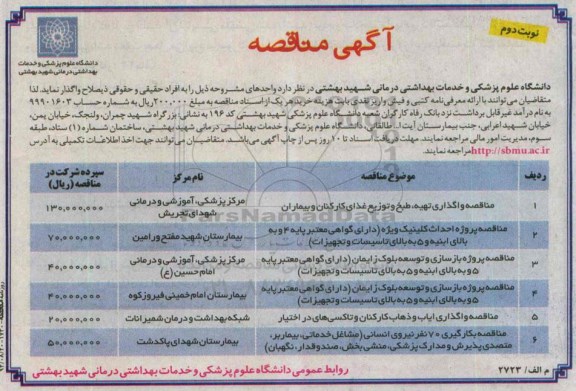 نوبت دوم
آگهی مناقصه
دانشگاه علوم پزشکی و خدمات
بهداشتی درمانی شهید بهشتی
دانشگاه علوم پزشکی و خدمات بهداشتی درمانی شهید بهشتی در نظر دارد واحدهای مشروحه ذیل را به افراد حقیقی و حقوقی ذیصلاح واگذار نماید، لذا
متقاضیان می‌توانند با ارائه معرفی‌نامه کتبی و فیش واریز نقدی بابت هزینه خرید هر یک از اسناد مناقصه به مبلغ ۲۰۰،۰۰۰ ریال به شماره حساب ۹۹۹۰۱۶۰۳
به نام درآمد غیر قابل برداشت نزد بانک رفاه کارگران شعبه دانشگاه علوم پزشکی شهید بهشتی کد ۱۹۶ به نشانی: بزرگراه شهید چمران، ولنجک، خیابان یمن،
خیابان شهید اعرابی، جنب بیمارستان آیت‌ا... طالقانی، دانشگاه علوم پزشکی و خدمات بهداشتی درمانی شهید بهشتی، ساختمان شماره (۱) ستاد، طبقه
سوم، مدیریت امور مالی مراجعه نمایند. مهلت دریافت اسناد تا ۱۰ روز پس از چاپ آگهی می‌باشد. متقاضیان می‌توانند جهت اخذ اطلاعات تکمیلی به آدرس
http://sbmu.ac.ir مراجعه نمایند.
ردیف موضوع مناقصه نام مرکز سپرده شرکت در مناقصه (ریال)
۱ مناقصه واگذاری تهیه، طبخ و توزیع غذای کارکنان و بیماران مرکز پزشکی، آموزشی و درمانی شهدای تجریش ۱۳۰،۰۰۰،۰۰۰
۲ مناقصه پروژه احداث کلینیک ویژه (دارای گواهی معتبر پایه ۴ و به بالای ابنیه و ۵ به بالای تاسیسات و تجهیزات) بیمارستان شهید مفتح ورامین ۷۰،۰۰۰،۰۰۰
۳ مناقصه پروژه بازسازی و توسعه بلوک زایمان (دارای گواهی معتبر پایه ۵ و به بالای ابنیه و ۵ به بالای تاسیسات و تجهیزات) مرکز پزشکی، آموزشی و درمانی امام حسین (ع) ۴۰،۰۰۰،۰۰۰
۴ مناقصه پروژه بازسازی و توسعه بلوک زایمان (دارای گواهی معتبر پایه ۵ و به بالای ابنیه و ۵ به بالای تاسیسات و تجهیزات) بیمارستان امام خمینی فیروزکوه ۴۰،۰۰۰،۰۰۰
۵ مناقصه واگذاری ایاب و ذهاب کارکنان و تاکسی‌های در اختیار شبکه بهداشت و درمان شمیرانات ۲۰،۰۰۰،۰۰۰
۶ مناقصه بکارگیری ۷۰ نفر نیروی انسانی (مشاغل خدماتی، بیماربر، متصدی پذیرش و مدارک پزشکی، منشی بخش، صندوقدار، نگهبان) بیمارستان شهدای پاکدشت ۵۰،۰۰۰،۰۰۰
م الف / ۲۷۲۳
روابط عمومی دانشگاه علوم پزشکی و خدمات بهداشتی درمانی شهید بهشتی